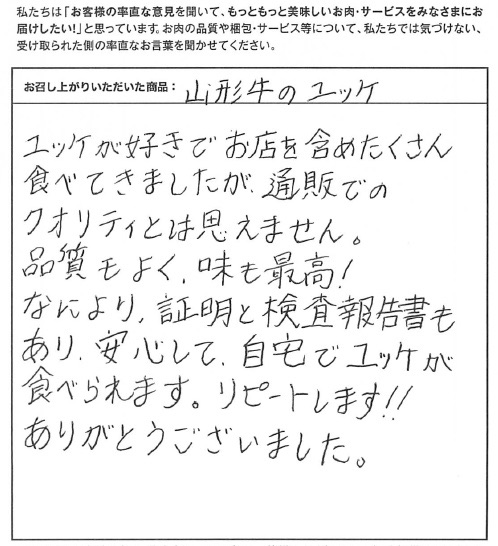 私たちは「お客様の率直な意見を聞いて、もっともっと美味しいお肉・サービスをみなさまにお
届けしたい！」と思っています。お肉の品質や梱包・サービス等について、私たちでは気づけない、
受け取られた側の率直なお言葉を聞かせてください。
お召し上がりいただいた商品： 山形牛のユッケ
ユッケが好きでお店を含めたくさん
食べてきましたが、通販での
クオリティとは思えません。
品質もよく、味も最高！
なにより、証明と検査報告書も
あり、安心して、自宅でユッケが
食べられます。リピートします!!
ありがとうございました。